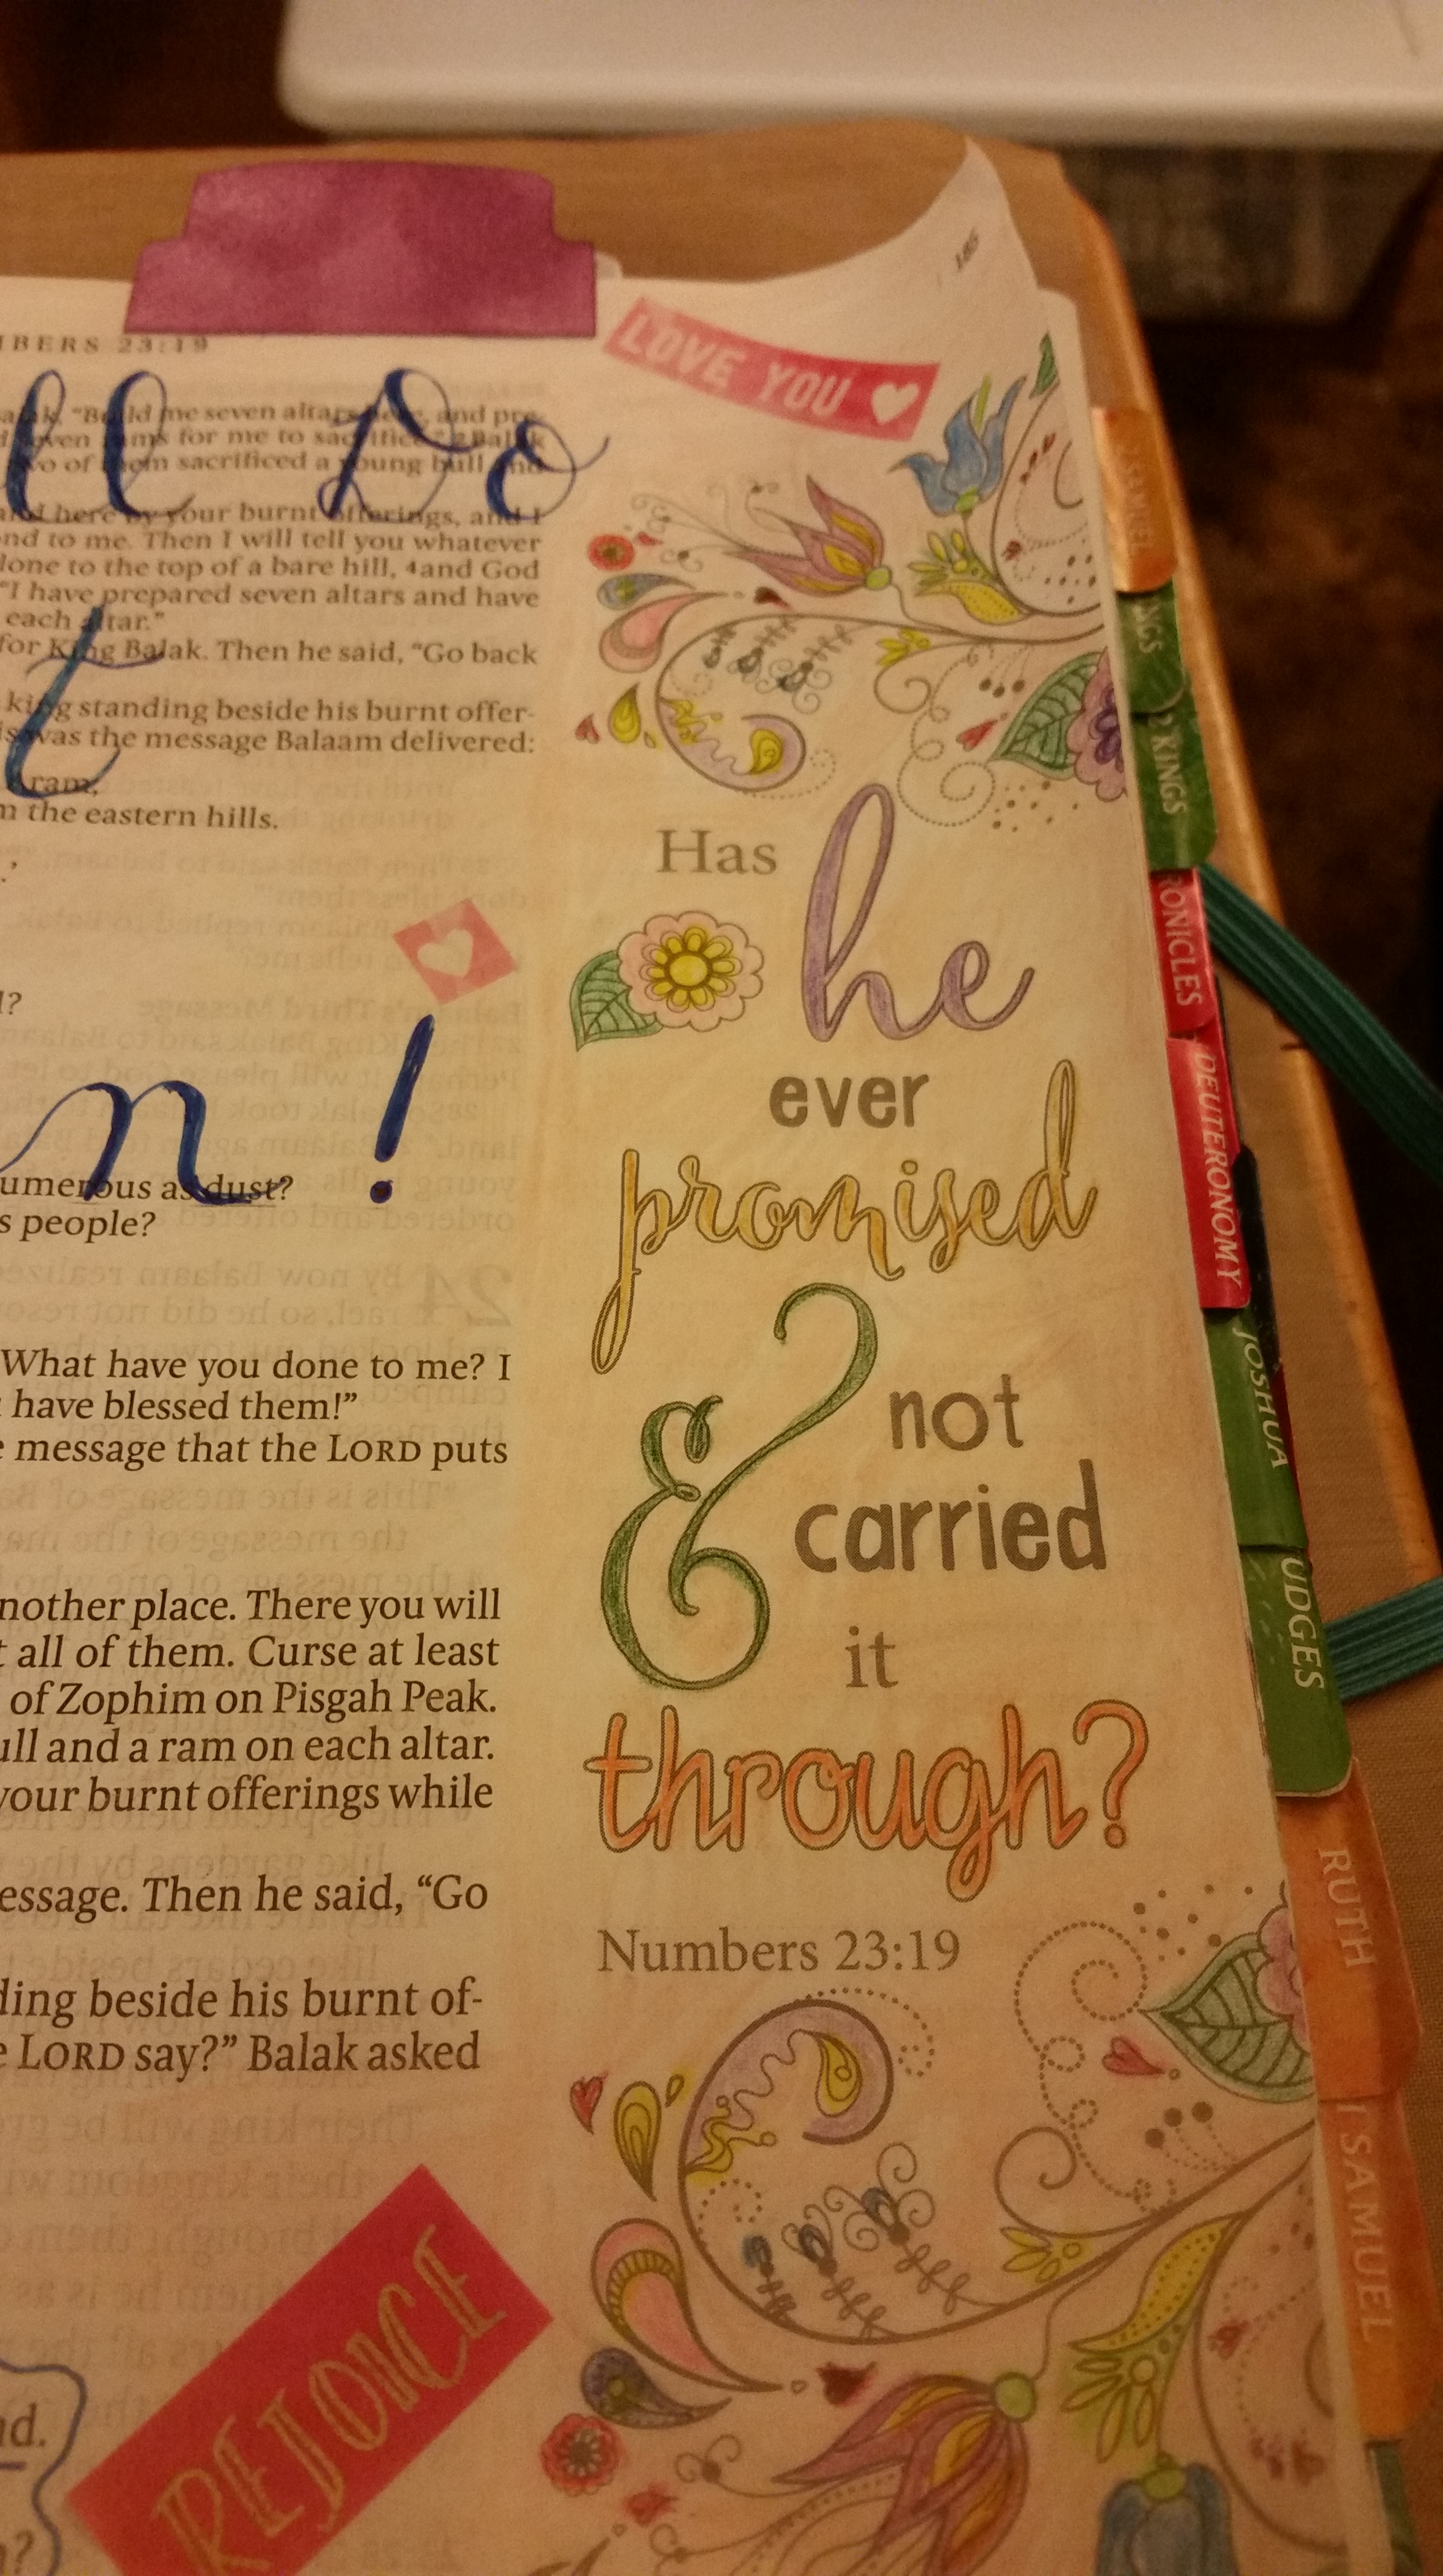 185
BERS 23:19
LOVE YOU
ll Do
"Build me seven altars here, and pre-
seven rams for me to sacrifice." 2 Balak
two of them sacrificed a young bull and
and here by your burnt offerings, and I
nd to me. Then I will tell you whatever
lone to the top of a bare hill, 4and God
"I have prepared seven altars and have
each altar."
for King Balak. Then he said, "Go back
t
king standing beside his burnt offer-
is was the message Balaam delivered:
ram;
m the eastern hills.
.'
l?
n!
umerous as dust?
s people?
What have you done to me? I
have blessed them!"
e message that the LORD puts
nother place. There you will
t all of them. Curse at least
of Zophim on Pisgah Peak.
ull and a ram on each altar.
your burnt offerings while
essage. Then he said, "Go
ding beside his burnt of-
e LORD say?" Balak asked
REJOICE
nd.
n?
Has
he
ever
promised
&
not
carried
it
through?
Numbers 23:19
2 SAMUEL
NGS
2 KINGS
RONICLES
DEUTERONOMY
JOSHUA
UDGES
RUTH
1 SAMUEL